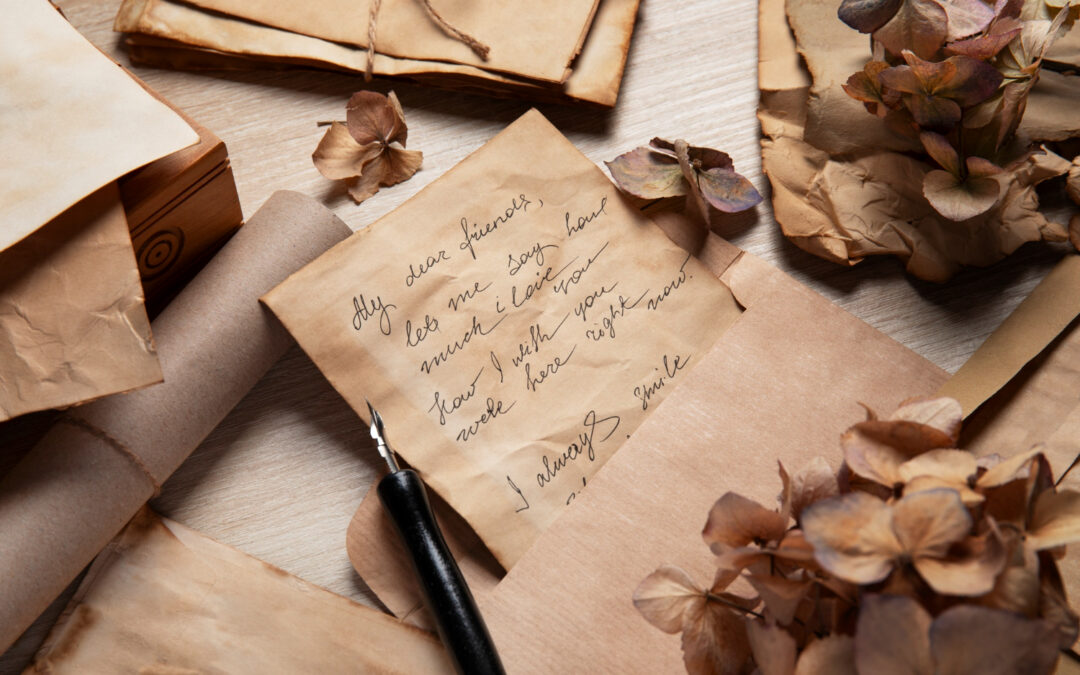 My dear friends,
lets me say have
much i love you
How I wish you
were here right now.
I always smile